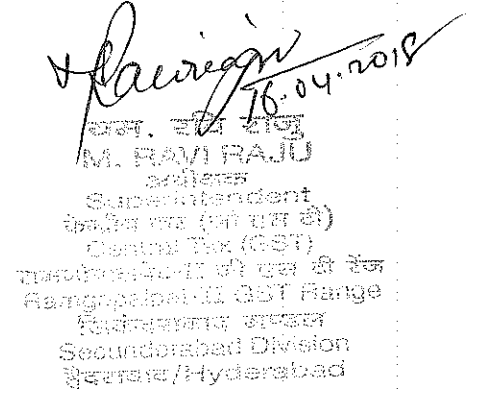 Raviraju
16.04.2018
एम. रवि राजु
M. RAVI RAJU
अधीक्षक
Superintendent
केन्द्रीय कर (जी एस टी)
Central Tax (GST)
रामगोपालपेट-II जी एस टी रेंज
Ramgopalpet-II GST Range
सिकंदराबाद मण्डल
Secunderabad Division
हैदराबाद/Hyderabad